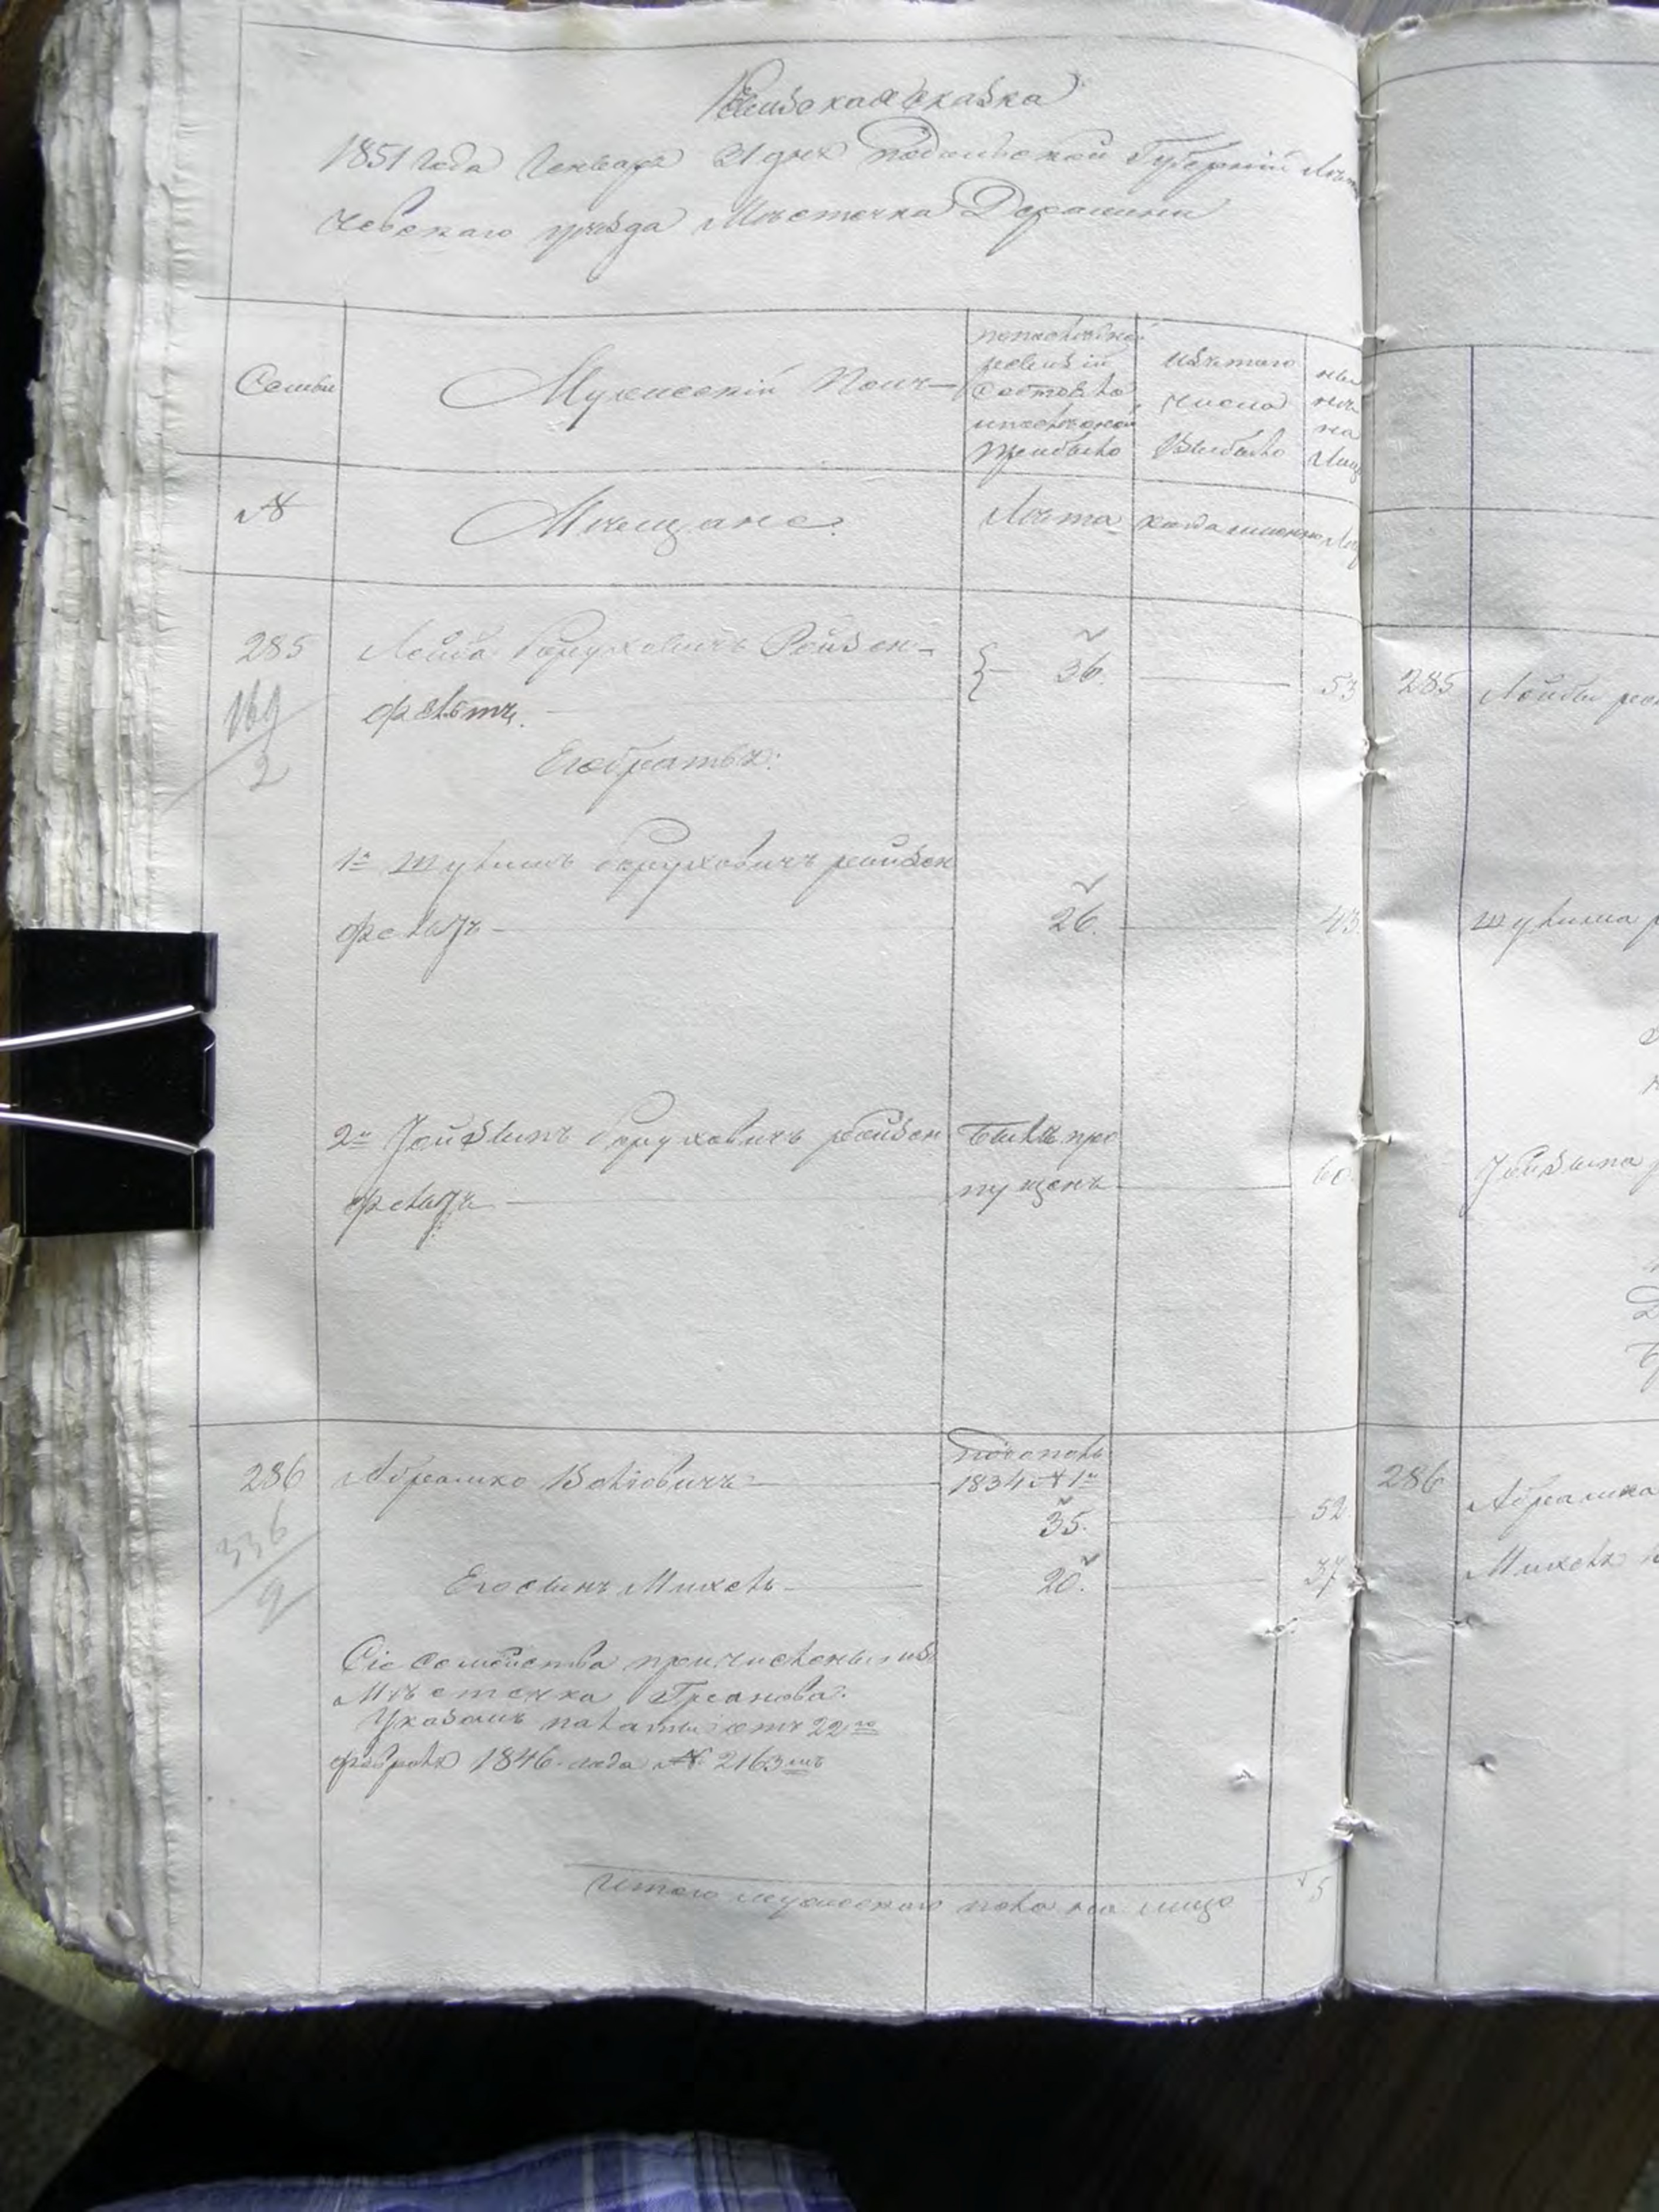 Ревизская сказка
1851 года Генваря 31 дня Подольской Губернии Лети
чевскаго уезда Местечка Деражни
Семьи
Мужеский Пол
по последней
ревизии
состояло
и после оной
прибыло
Из того
числа
Выбыло
ны
не
на
лицо
№
Мещане
Лета
когда именно
285
Лейба Борухович Ройзен-
36.
53
фельт
169
2
Его братья:
1й Шулим Борухович ройзен
фельд
26.
43
2й Борухович ройзен
был про
фельд
пущен
60
286
Абрамко Волкович
1834 № 1й
35.
52
Его сын Михель
20.
37
336
2
Сие семейство причислены из
Местечка Гранова.
Указом палаты от 22го
февраля 1846 года № 2163м
Итого мужескаго пола на лицо
5
285
Лейбы
Шулима
286
Абрамка
Михеля